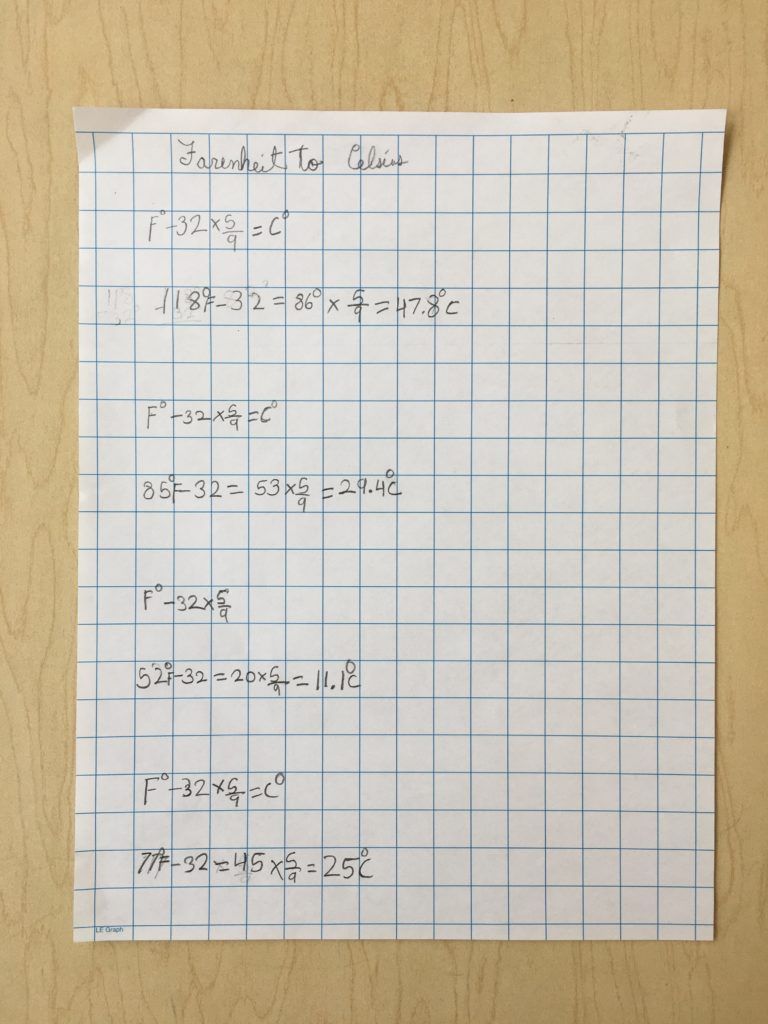 Farenheit to Celsius
F° -32 × 5/9 = C°
118°F - 32 = 86° × 5/9 = 47.8°C
F° -32 × 5/9 = C°
85°F - 32 = 53 × 5/9 = 29.4°C
F° -32 × 5/9
52°F - 32 = 20 × 5/9 = 11.1°C
F° -32 × 5/9 = C°
77°F - 32 = 45 × 5/9 = 25°C
LE Graph